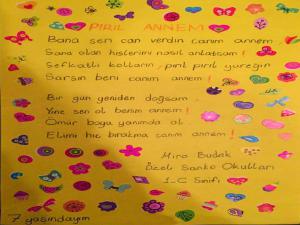 PIRIL ANNEM
Bana sen can verdin canım annem
Sana olan hislerimi nasıl anlatsam!
Şefkatli kolların, pırıl pırıl yüreğin
Sarsın beni canım annem!
Bir gün yeniden doğsam
Yine sen ol benim annem!
Ömür boyu yanımda ol
Elimi hiç bırakma canım annem!
Mira Budak
Özel Sanko Okulları
1-C Sınıfı
7 yaşındayım